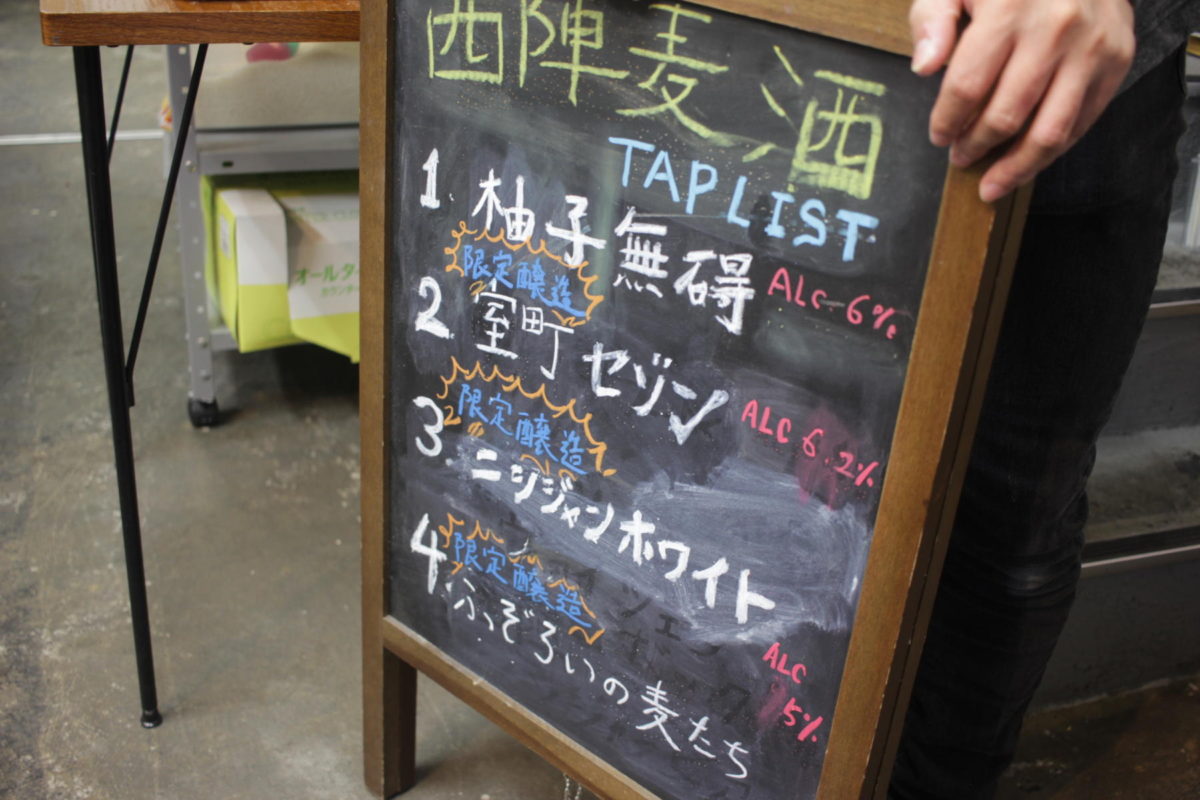 西陣麦酒
TAP LIST
1. 柚子無碍 ALC 6%
限定醸造
2. 室町セゾン ALC 6.2%
限定醸造
3. ニシジャンホワイト
限定醸造
4. ふぞろいの麦たち ALC 5%
オールタ
カウンター